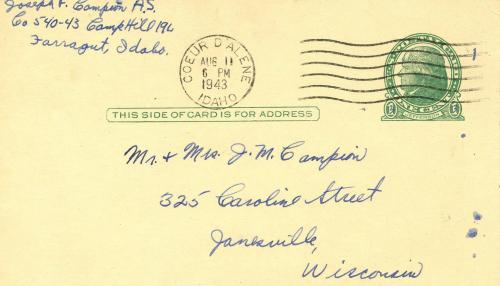 Joseph F. Campion A.S.
Co 540-43 Camp Hill 19L
Farragut, Idaho.
COEUR D'ALENE
AUG 11
6 PM
1943
IDAHO
THIS SIDE OF CARD IS FOR ADDRESS
Mr. & Mrs. J. M. Campion
325 Caroline Street
Janesville,
Wisconsin